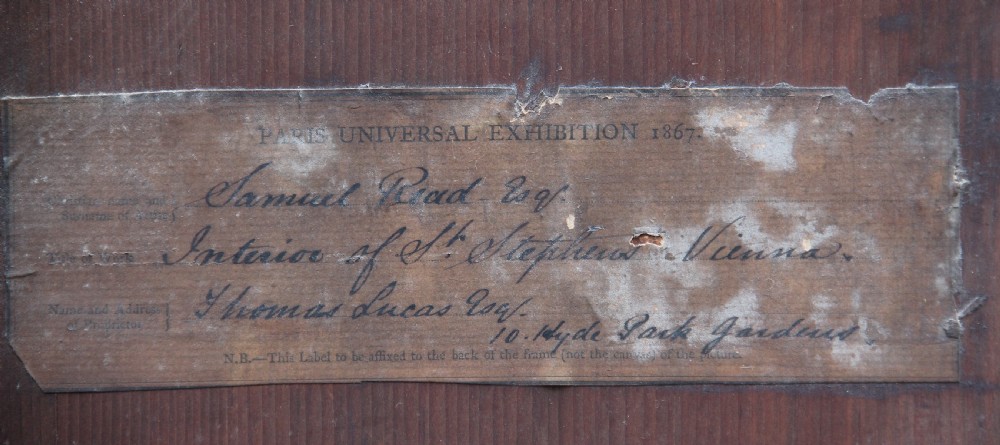 PARIS UNIVERSAL EXHIBITION 1867.
Samuel Read Esqr.
Surname of
Interior of St. Stephens Vienna.
Name and Address Thomas Lucas Esqr.
of Proprietor
10. Hyde Park Gardens.
N.B.—This Label to be affixed to the back of the frame (not the canvas) of the picture.